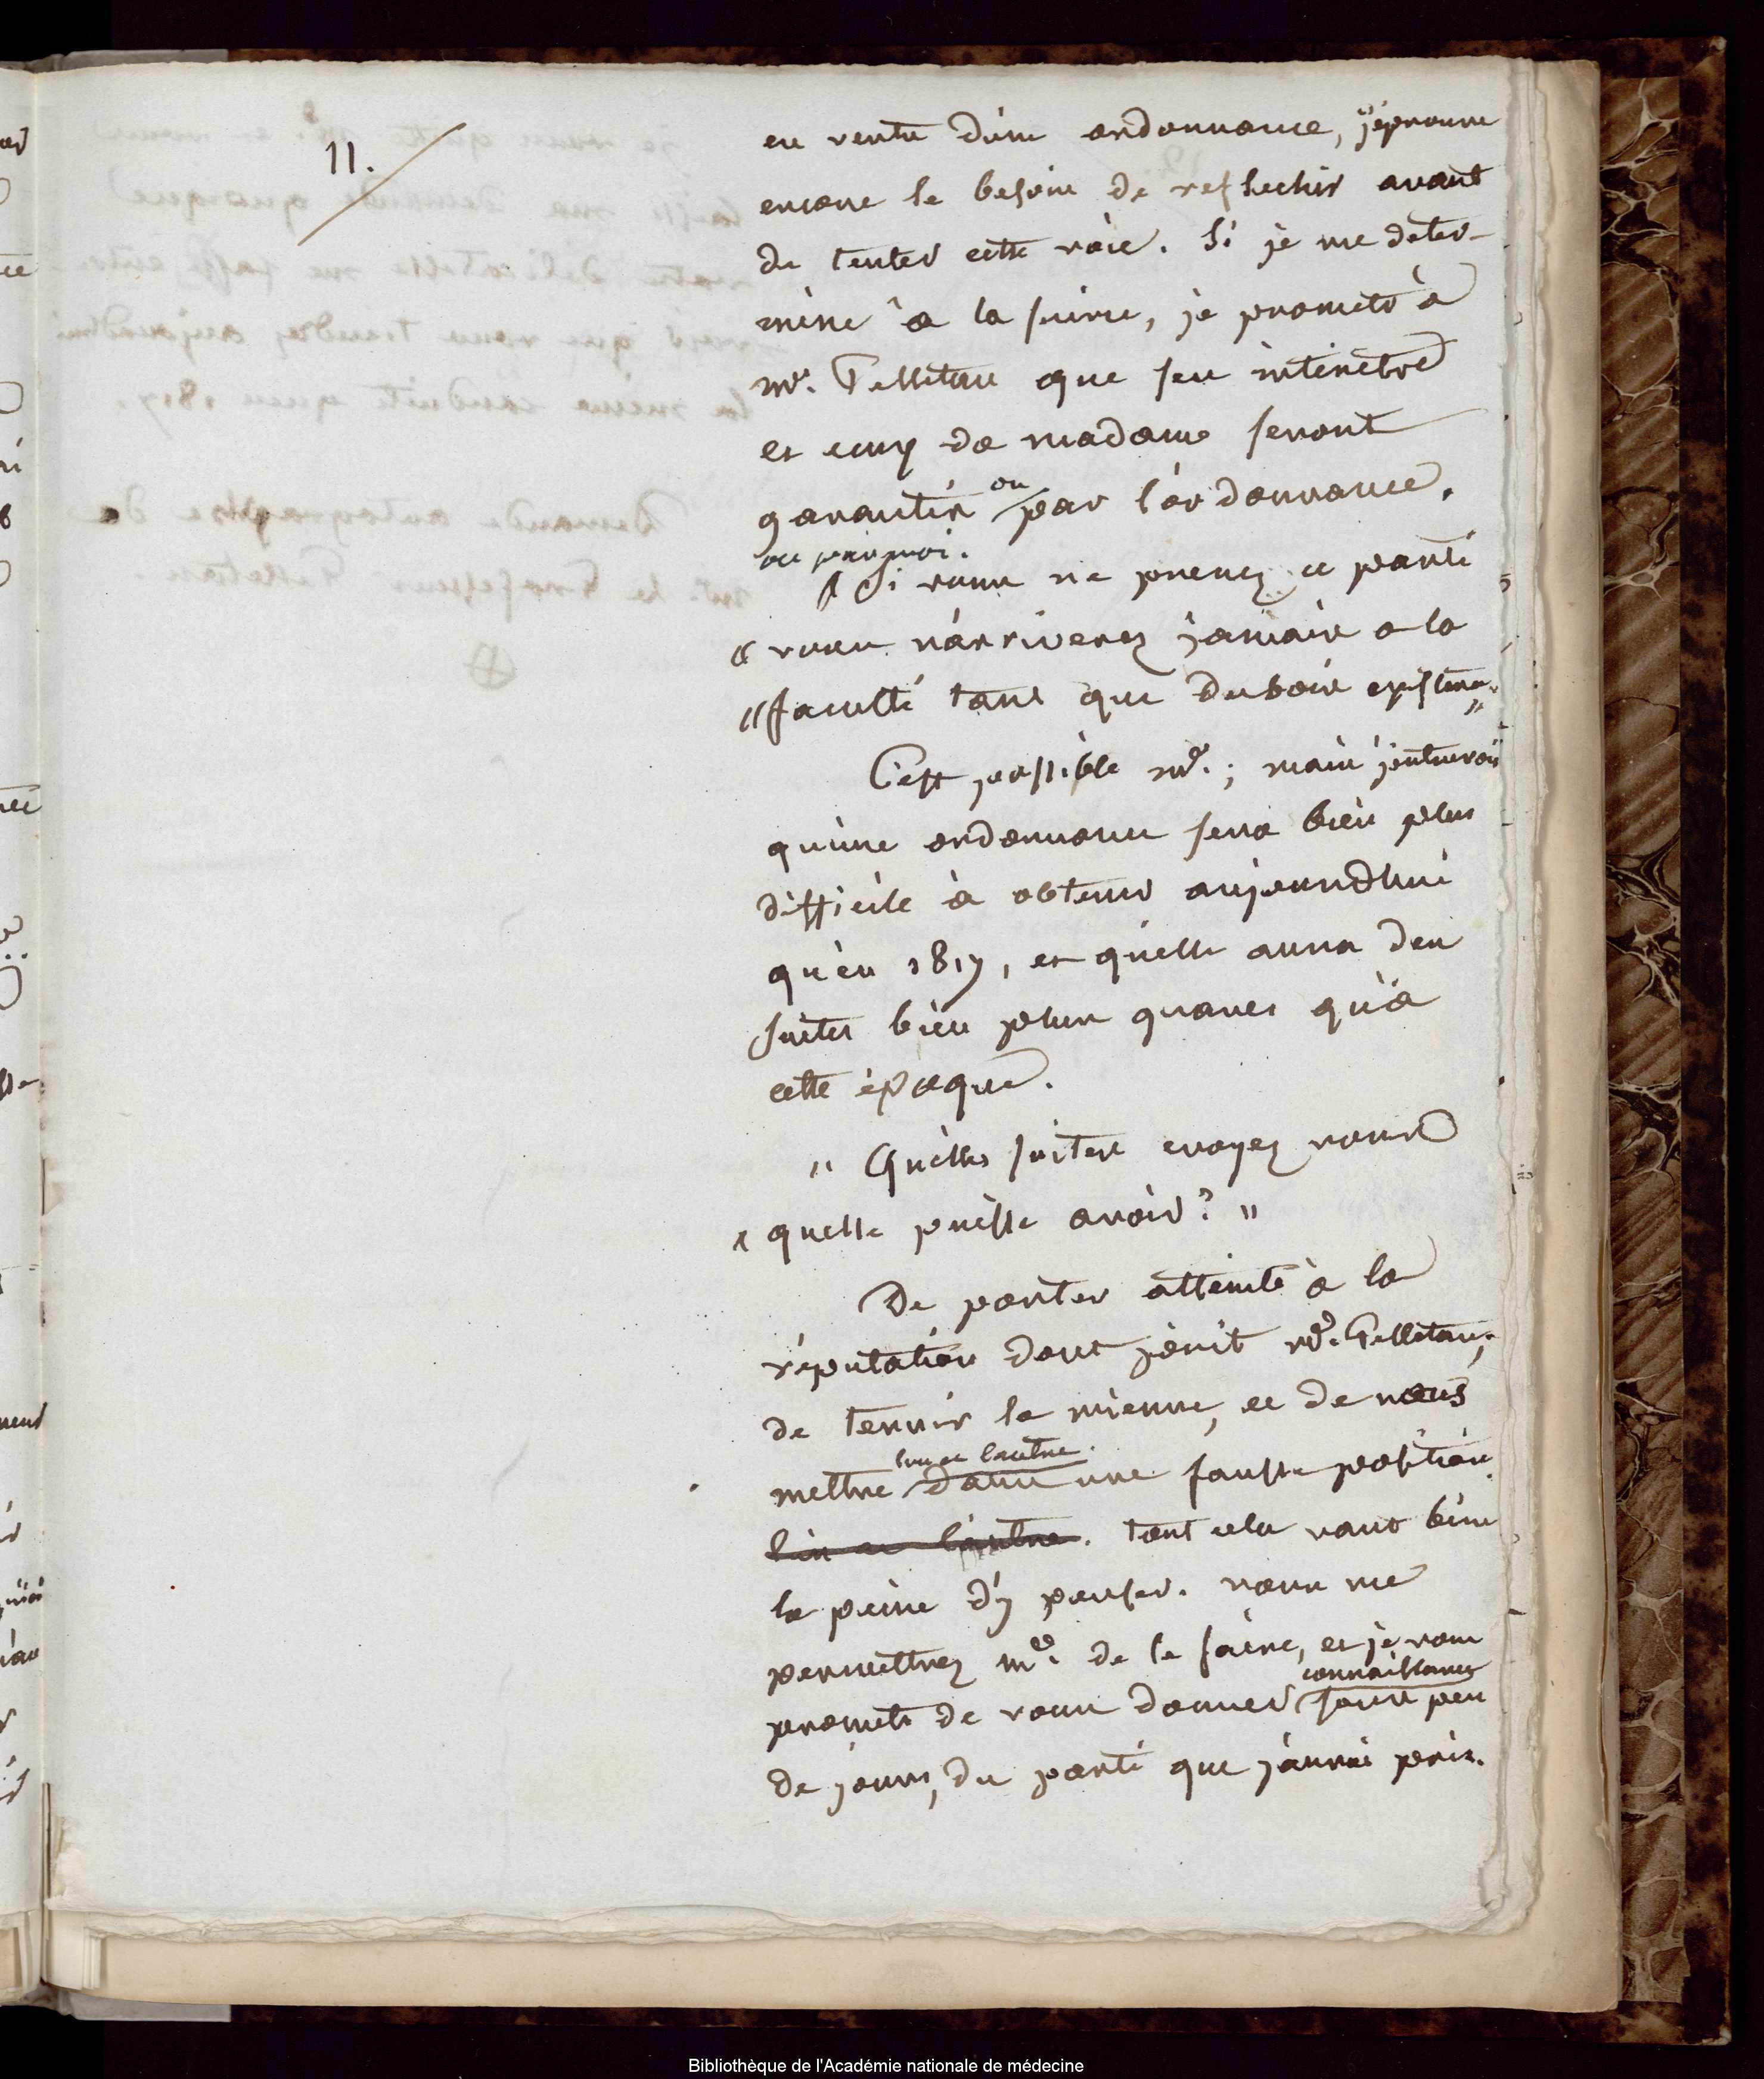 11.
en vertu d'une ordonnance, j'éprouve
encore le besoin de reflechir avant
de tenter cette voie. Si je me deter-
mine à la suivre, je promets à
mr. Pelletan que ses interêts
et ceux de madame seront
garantis ou par l'ordonnance,
ou par moi.
« Si vous ne prenez ce parti
« vous n'arriverez jamais a la
« faculté tant que dubois existera »
C'est possible mr. ; mais j'entrevois
qu'une ordonnance sera bien plus
difficile à obtenir aujourd'hui
qu'en 1817, et qu'elle aura des
suites bien plus graves qu'à
cette époque.
" Quelles suites croyez vous
« quelle puisse avoir? "
De porter atteinte à la
réputation dont jouit mr. Pelletan,
de ternir la mienne, et de nous
mettre l'un et l'autre dans une fausse position
l'un et l'autre. tout cela vaut bien
la peine d'y penser. vous me
permettrez mr. de le faire, et je vous
promets de vous donner connaissance sous peu
de jours, du parti que j'aurai pris.
Bibliothèque de l'Académie nationale de médecine